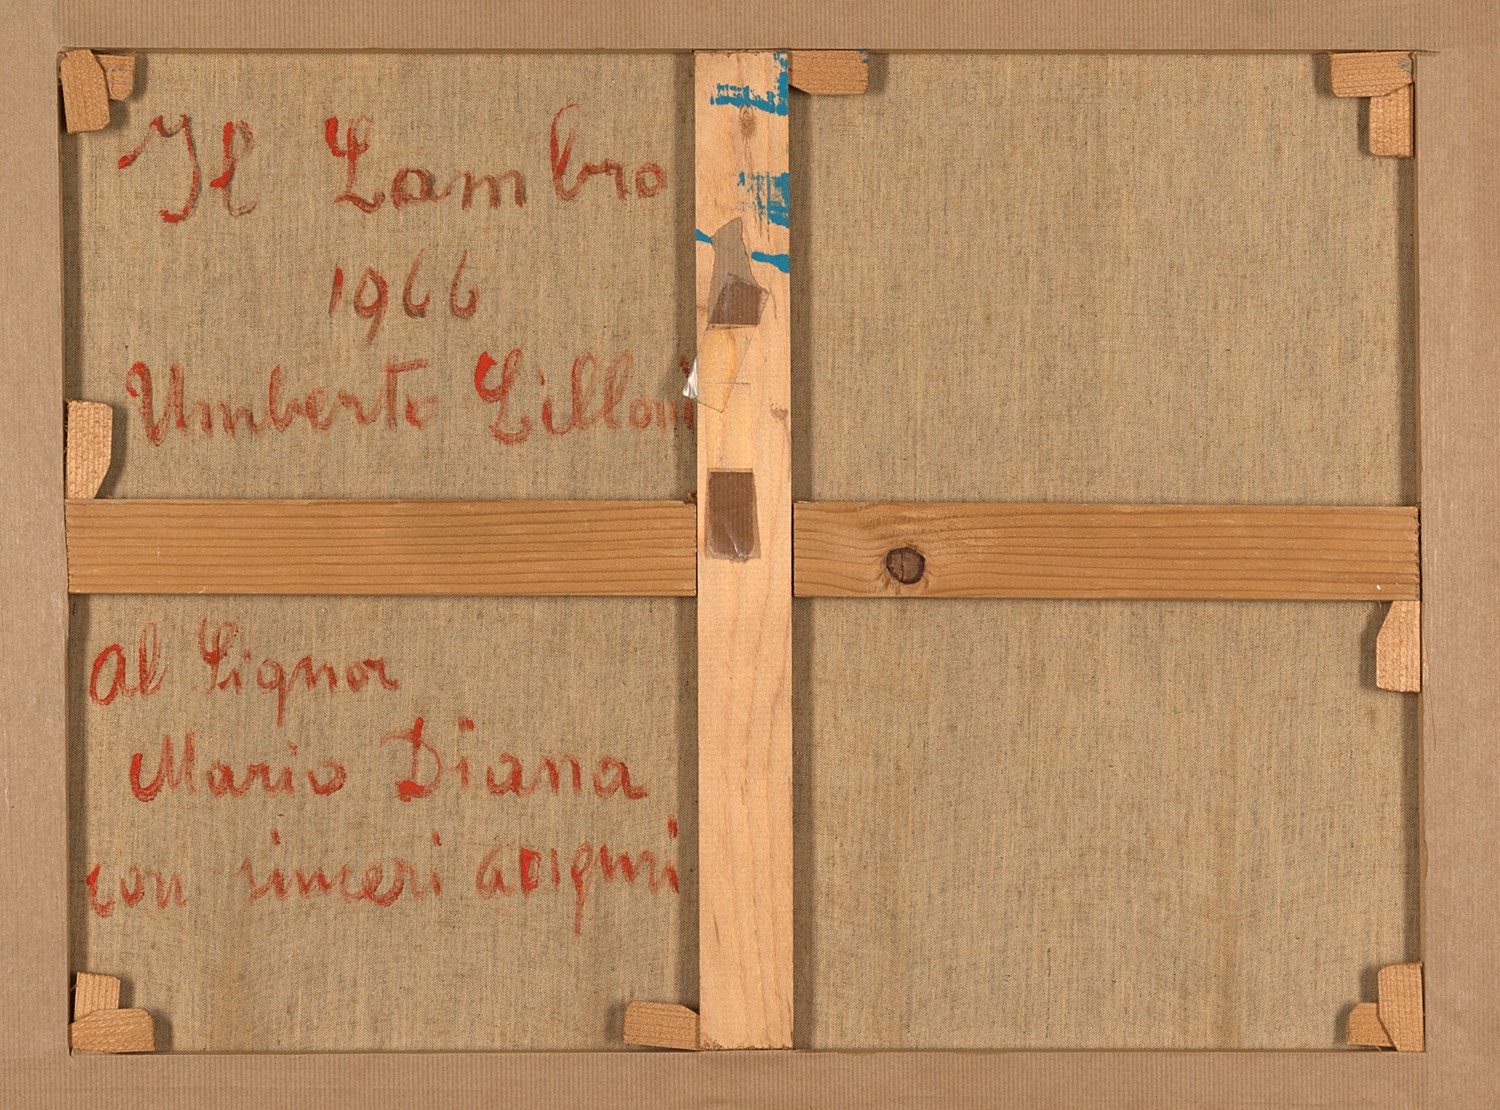 Il Lambro
1966
Umberto Lilloni
al Signor
Mario Diana
con sinceri auguri